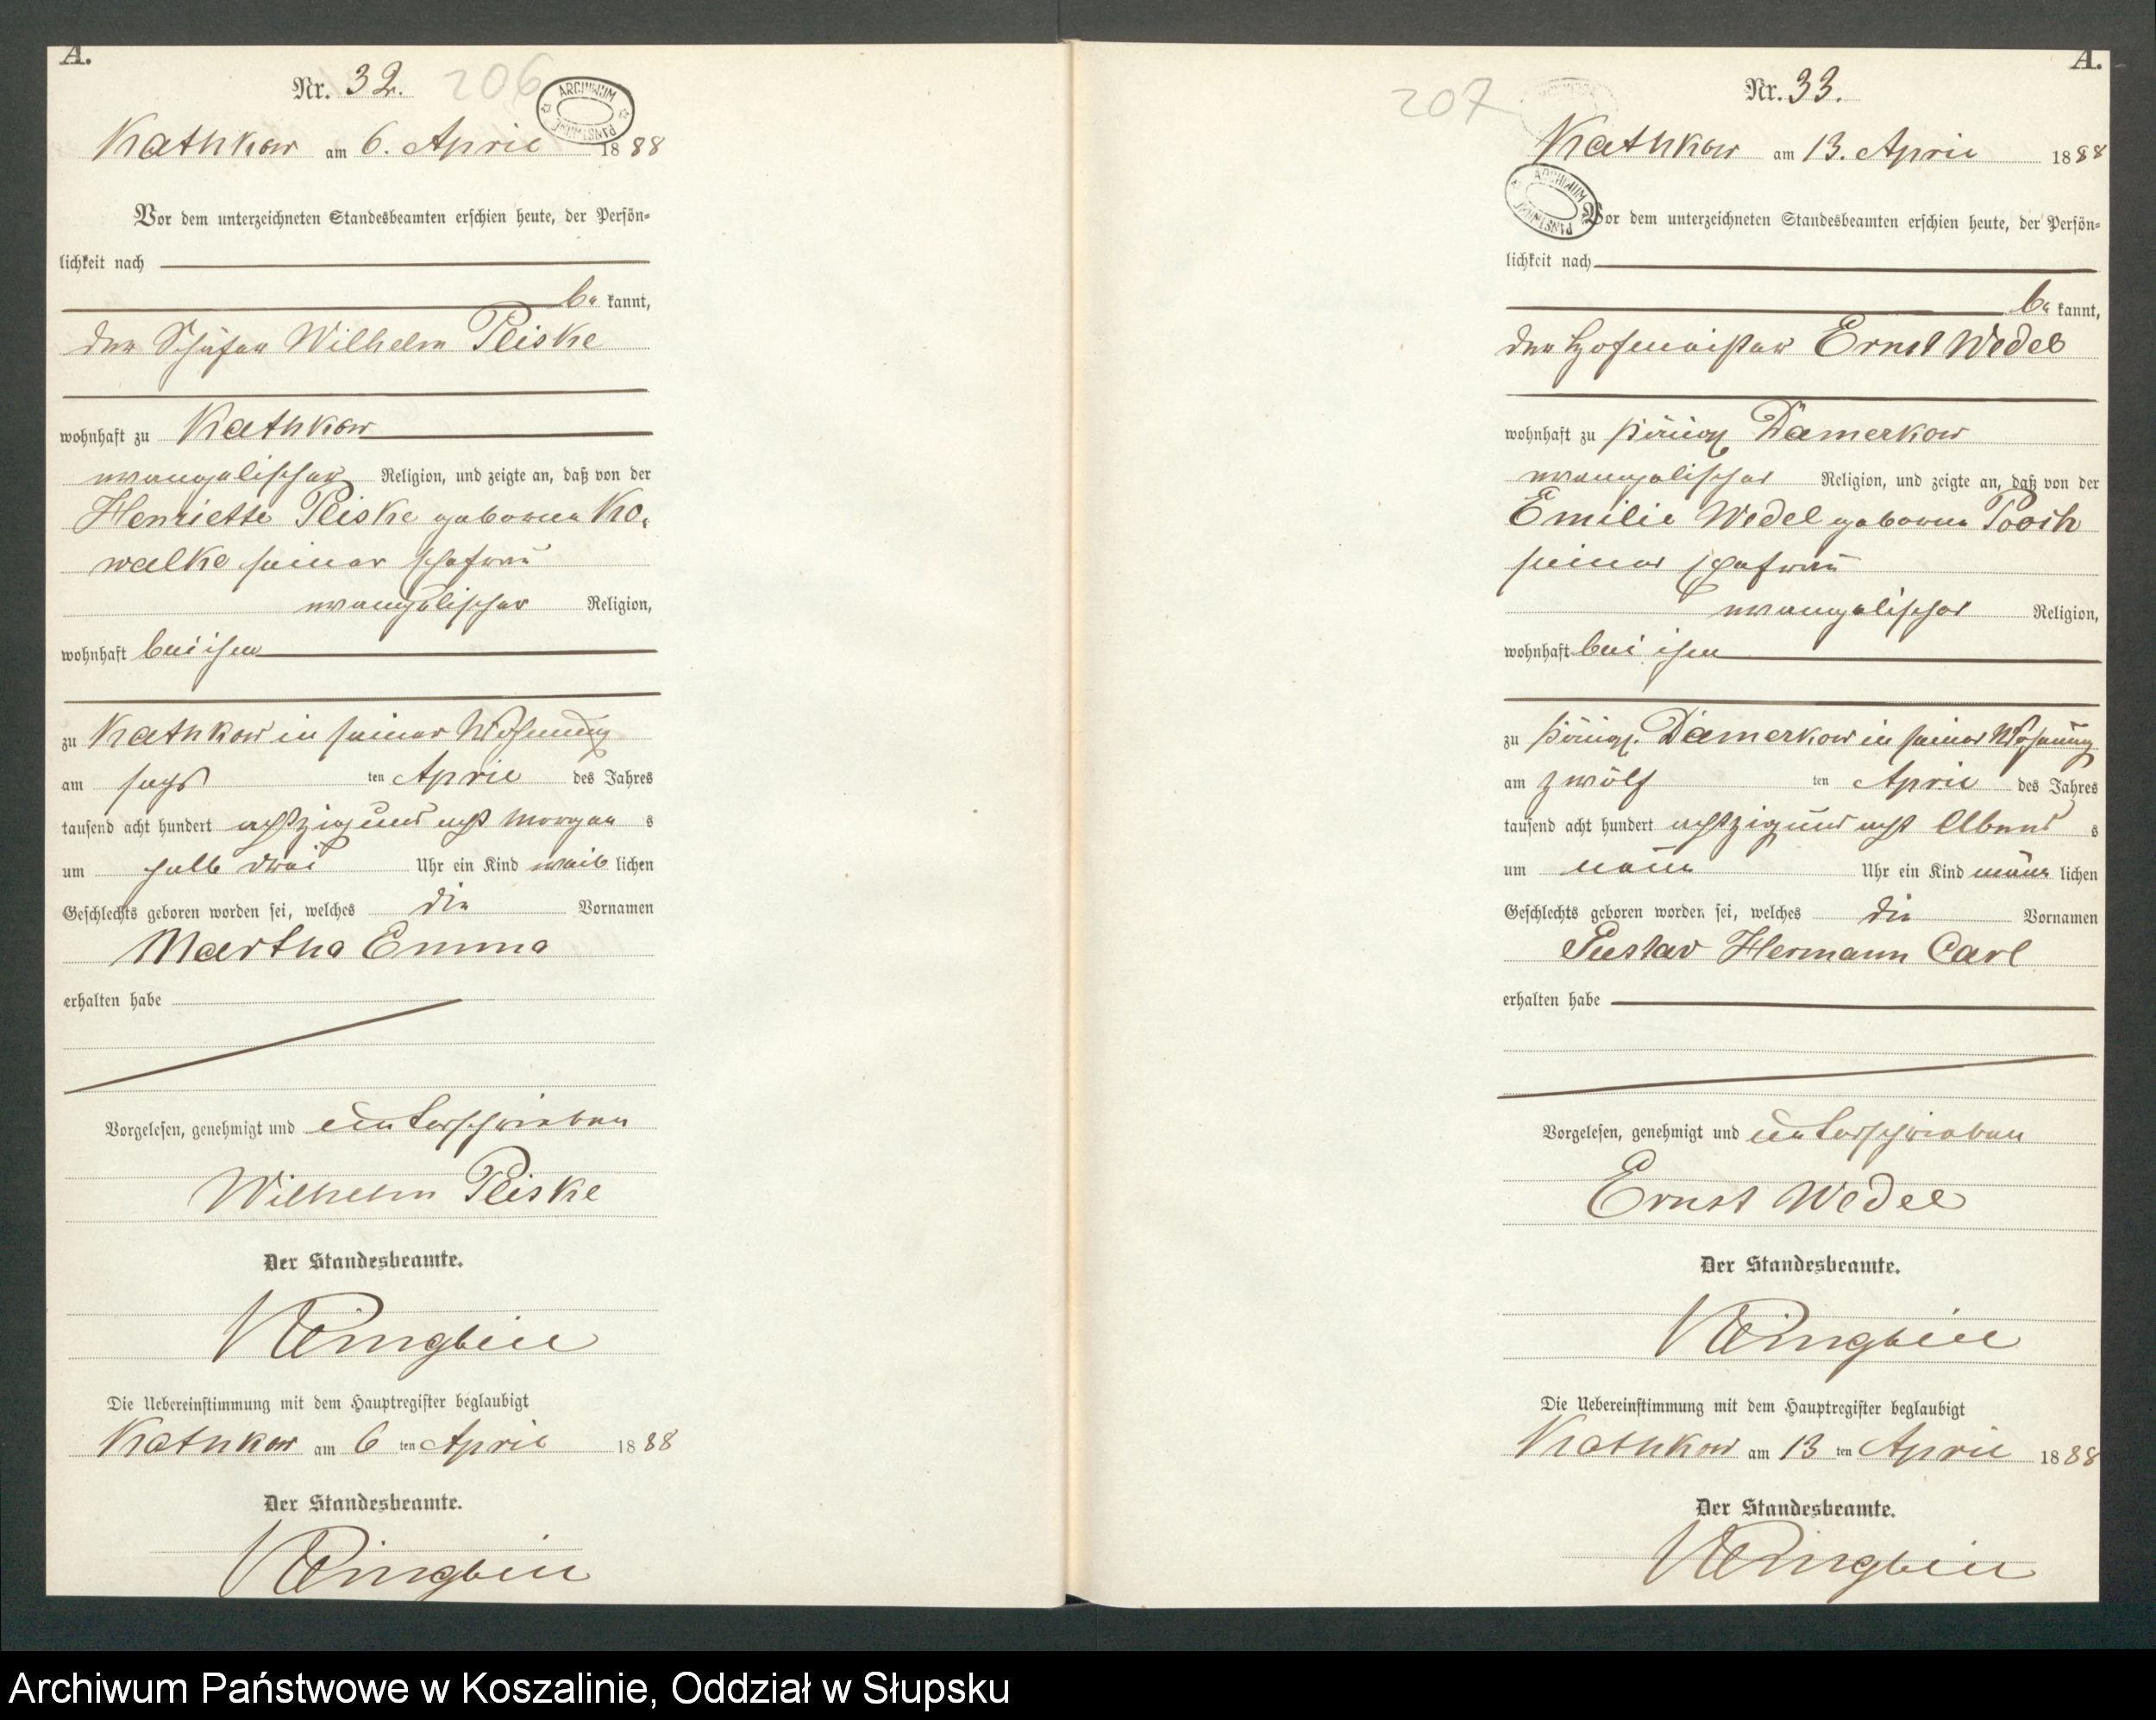 A.
Nr. 32.
206
ARCHIWUM PAŃSTWOWE
Kathkow am 6. April 1888
Vor dem unterzeichneten Standesbeamten erschien heute, der Persön=
lichkeit nach
be kannt,
der Schäfer Wilhelm Pliske
wohnhaft zu Kathkow
evangelischer Religion, und zeigte an, daß von der
Henriette Pliske geborene Ko-
walke seiner Ehefrau
evangelischer Religion,
wohnhaft bei ihm
zu Kathkow in seiner Wohnung
am sechs ten April des Jahres
tausend acht hundert achtzig und acht Morgen s
um halb drei Uhr ein Kind weib lichen
Geschlechts geboren worden sei, welches die Vornamen
Martha Emma
erhalten habe
Vorgelesen, genehmigt und unterschrieben
Wilhelm Pliske
Der Standesbeamte.
Die Uebereinstimmung mit dem Hauptregister beglaubigt
Kathkow am 6 ten April 1888
Der Standesbeamte.
A.
Nr. 33.
207
Kathkow am 13. April 1888
ARCHIWUM PAŃSTWOWE
Vor dem unterzeichneten Standesbeamten erschien heute, der Persön=
lichkeit nach
be kannt,
der Hofmeister Ernst Wedel
wohnhaft zu Königl. Damerkow
evangelischer Religion, und zeigte an, daß von der
Emilie Wedel geborene Pooch
seiner Ehefrau
evangelischer Religion,
wohnhaft bei ihm
zu Königl. Damerkow in seiner Wohnung
am zwölf ten April des Jahres
tausend acht hundert achtzig und acht Abend s
um neun Uhr ein Kind männ lichen
Geschlechts geboren worden sei, welches die Vornamen
Gustav Hermann Carl
erhalten habe
Vorgelesen, genehmigt und unterschrieben
Ernst Wedel
Der Standesbeamte.
Die Uebereinstimmung mit dem Hauptregister beglaubigt
Kathkow am 13 ten April 1888
Der Standesbeamte.
Archiwum Państwowe w Koszalinie, Oddział w Słupsku